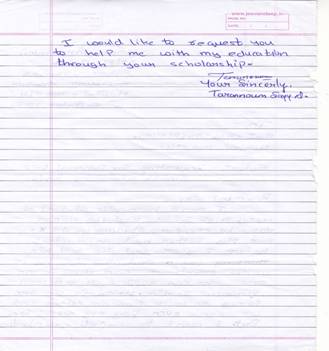 I would like to request you
to help me with my education
through your scholarship.
Your Sincerly,
Tarannoum